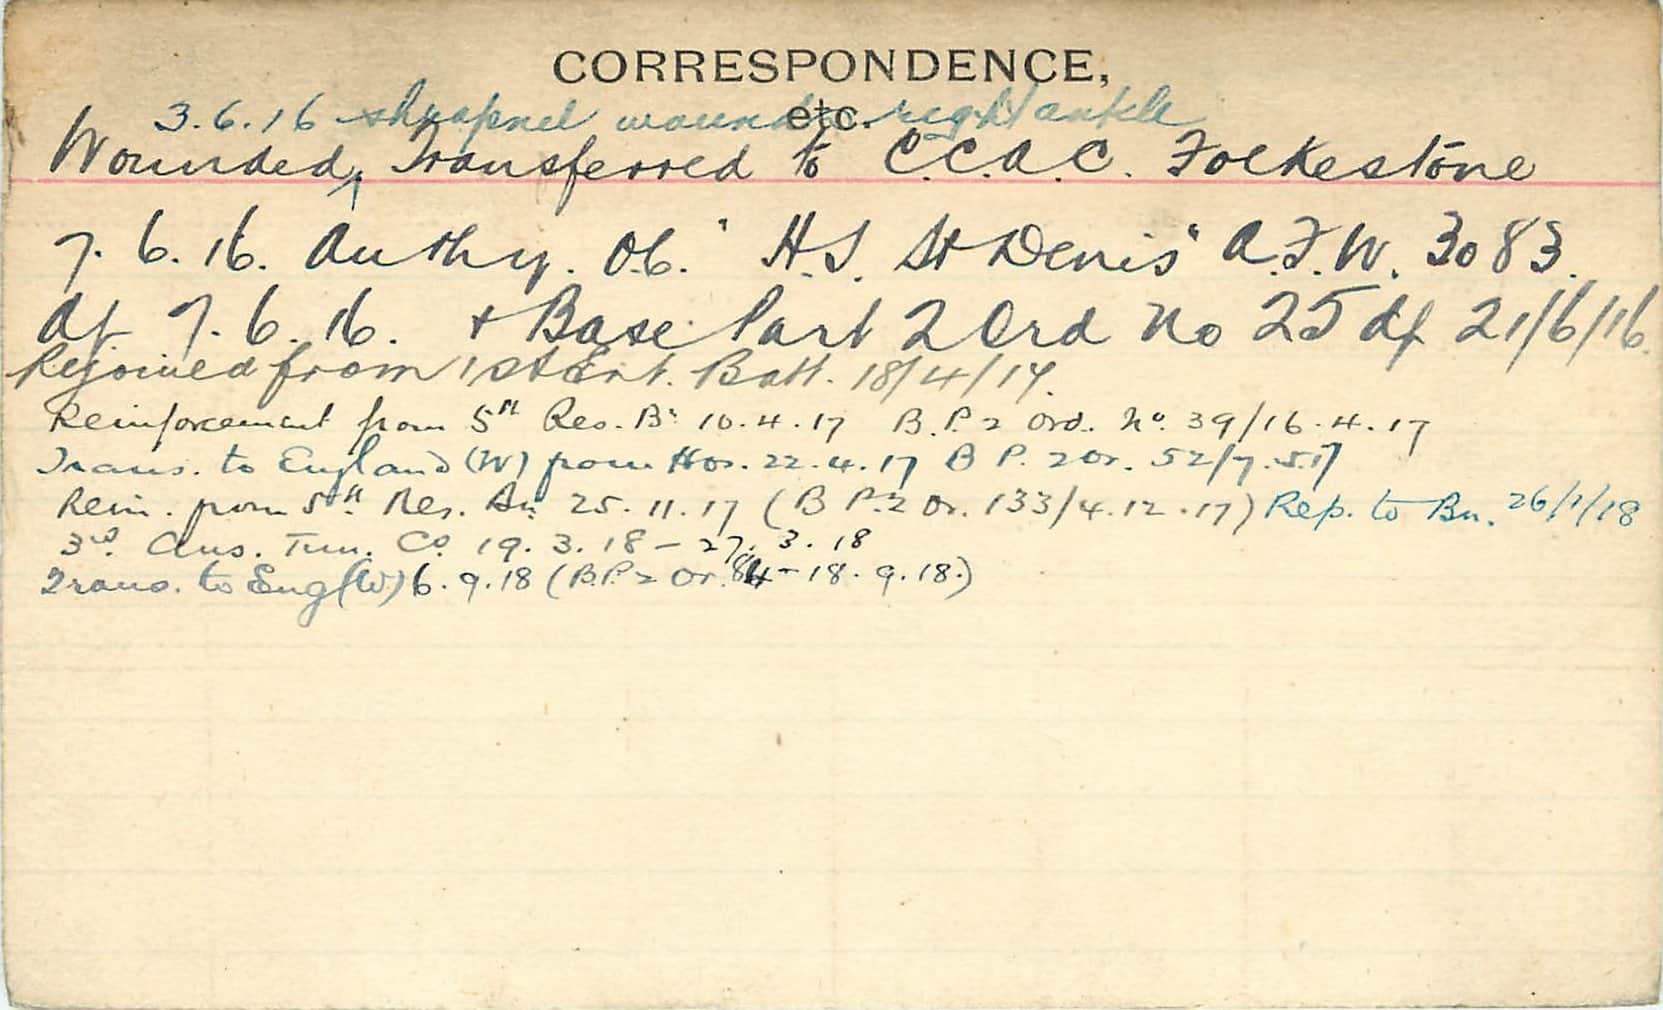 CORRESPONDENCE,
etc.
3.6.16 shrapnel wound right ankle
Wounded, Transferred to C.C.A.C. Folkestone
7.6.16. Authy. O.C. "H.S. St Denis" A.F.W. 3083.
df 7.6.16. + Base Part 2 Ord No 25 df 21/6/16.
Rejoined from 1st Ent. Batt. 18/4/17.
Reinforcement from 5th Res. Bn 10.4.17 B.P. 2 Ord. No. 39/16.4.17
Trans. to England (W) from Hos. 22.4.17 B P. 2 Or. 52/7.5.17
Rein. from 5th Res. Bn 25.11.17 (B P. 2 Or. 133/4.12.17) Rep. to Bn. 26/1/18
3rd. Aus. Tun. Co. 19.3.18 - 27.3.18
Trans. to Eng (W.) 6.9.18 (B.P. 2 Or. 84 - 18.9.18.)